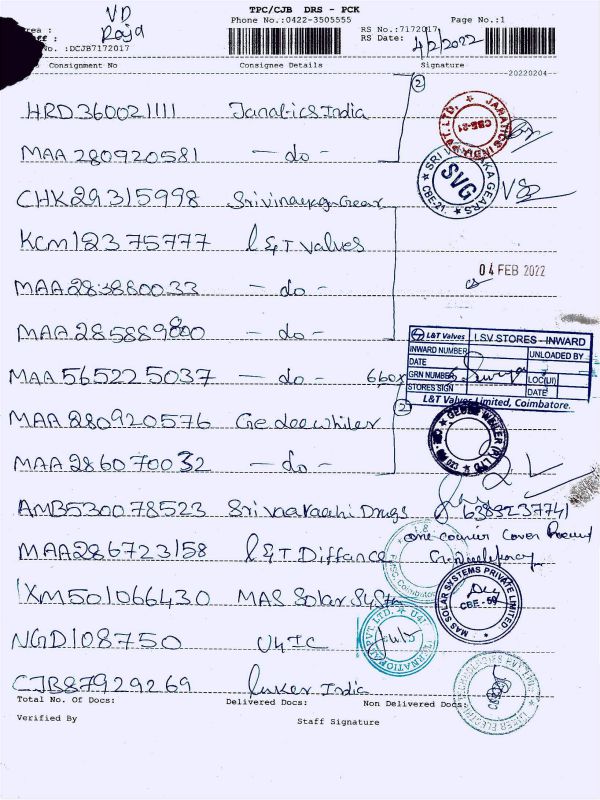 VD
Raja
TPC/CJB DRS - PCK
Phone No.:0422-3505555
Page No.:1
RS No.:7172017
RS Date: 4/2/2022
No. :DCJB7172017
Consignment No Consignee Details Signature
20220204
HRD360021111 Janatics India
MAA280920581 - do -
CHK29315998 Srivinayaga Gear
KCM12375777 L&T Valves
MAA283880033 - do -
04 FEB 2022
MAA285889800 - do -
MAA565225037 - do -
MAA280920576 Gedeewhiler
MAA286070032 - do -
AMB530078523 Srivaaraahi Drugs 6389237741
one courier cover
MAA286723158 L&T Diffance
IXM501066430 MAS Solar System
NGD108750 U4IC
CJB87929269 Luker India
Total No. Of Docs: Delivered Docs: Non Delivered Docs:
Verified By Staff Signature
JANATICS INDIA PVT. LTD.
CBE-21
SVG
CBE-21.
L&T Valves LSV STORES - INWARD
INWARD NUMBER UNLOADED BY
DATE
GRN NUMBER LOC(UI)
STORES SIGN DATE
L&T Valves Limited, Coimbatore.
MAS SOLAR SYSTEMS PRIVATE LIMITED